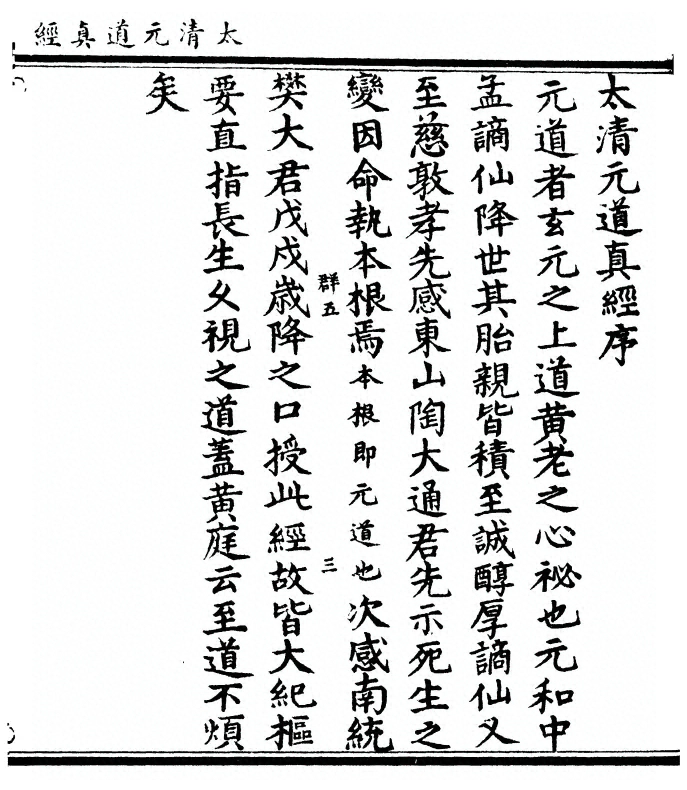 太清元道真經
太清元道真經序
元道者玄元之上道黄老之心祕也元和中
孟謫仙降世其胎親皆積至誠醇厚謫仙又
至慈敦孝先感東山陶大通君先示死生之
變因命執本根焉本根即元道也次感南統
群五
三
樊大君戊戍歳降之口授此經故皆大紀樞
要直指長生乆視之道蓋黄庭云至道不煩
矣